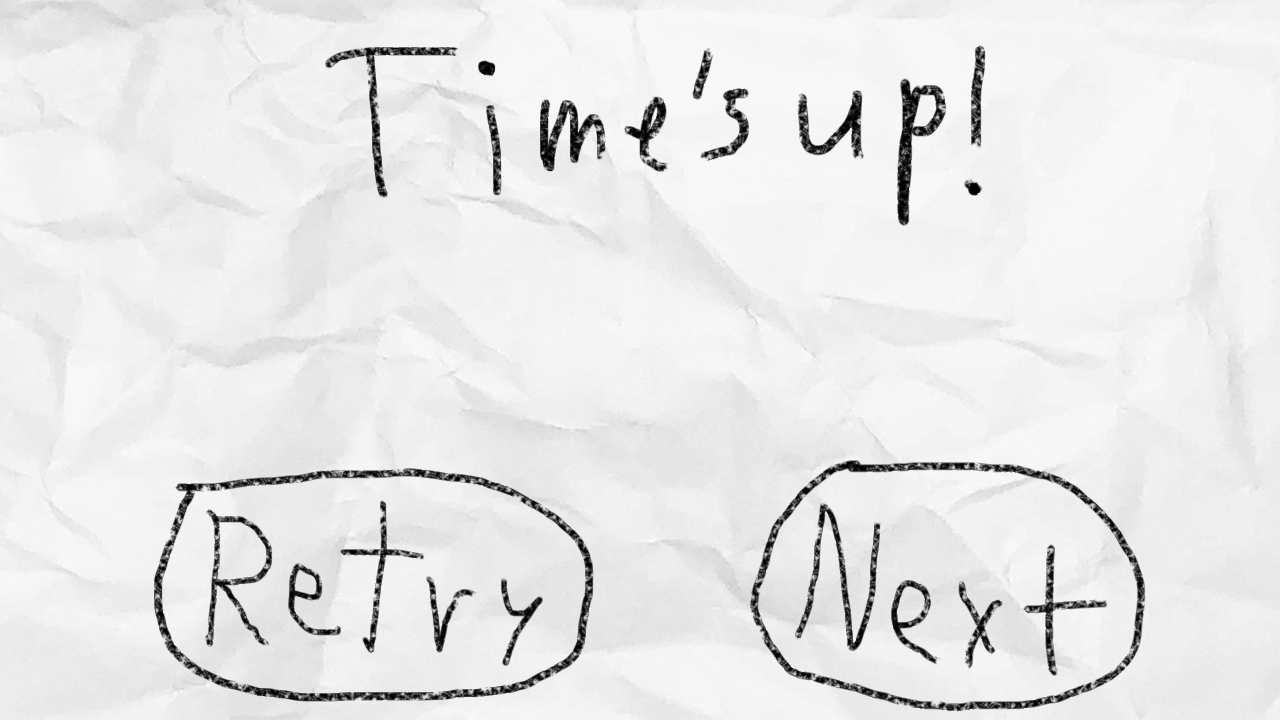 Time's up!
Retry Next